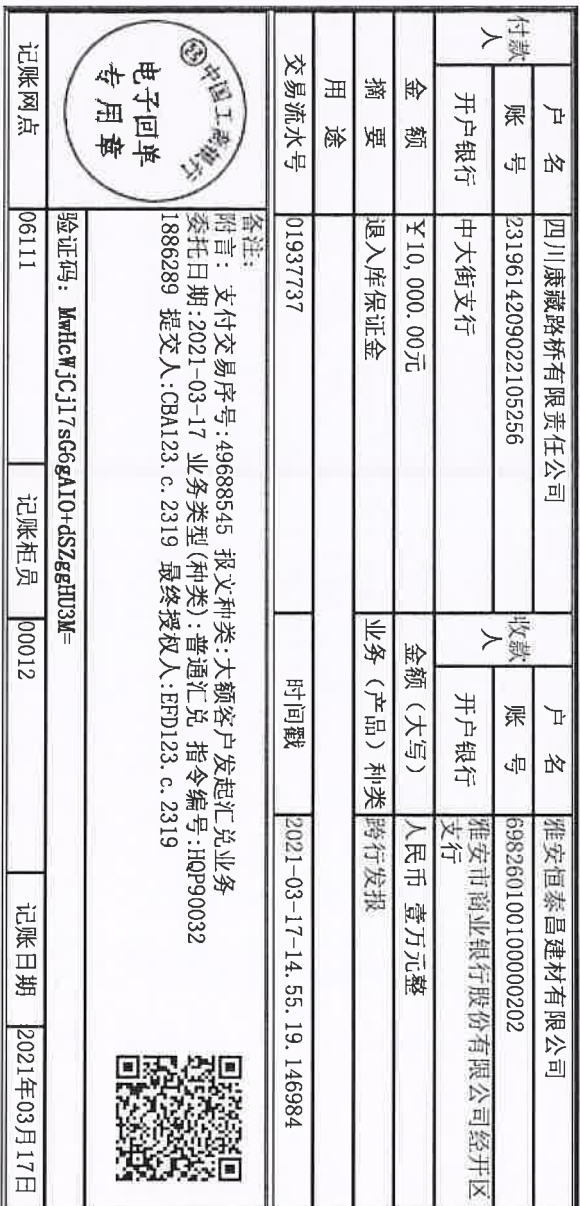 付款人 户 名 四川康藏路桥有限责任公司 收款人 户 名 雅安恒泰昌建材有限公司
账 号 2319614209022105256 账 号 69826010010000202
开户银行 中大街支行 开户银行 雅安市商业银行股份有限公司经开区支行
金 额 ¥10,000.00元 金额（大写） 人民币 壹万元整
摘 要 退入库保证金 业务（产品）种类 跨行发报
用 途
交易流水号 01937737 时间戳 2021-03-17-14.55.19.146984
中国工商银行
电子回单
专用章
备注:
附言: 支付交易序号:49688545 报文种类:大额客户发起汇兑业务
委托日期:2021-03-17 业务类型(种类):普通汇兑 指令编号:HQP90032
1886289 提交人:CBA123.c.2319 最终授权人:EFD123.c.2319
验证码: MwHcWjCjl7sG6gAIO+dSZggHU3M=
记账网点 06111 记账柜员 00012 记账日期 2021年03月17日